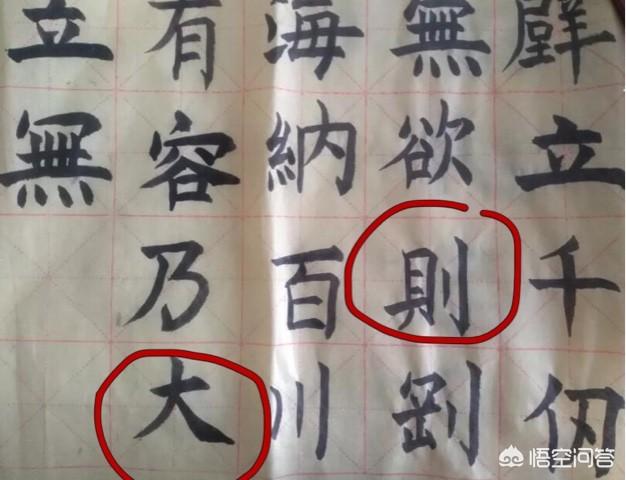 辟立千仞
無欲則剛
海納百川
有容乃大
立無
悟空问答